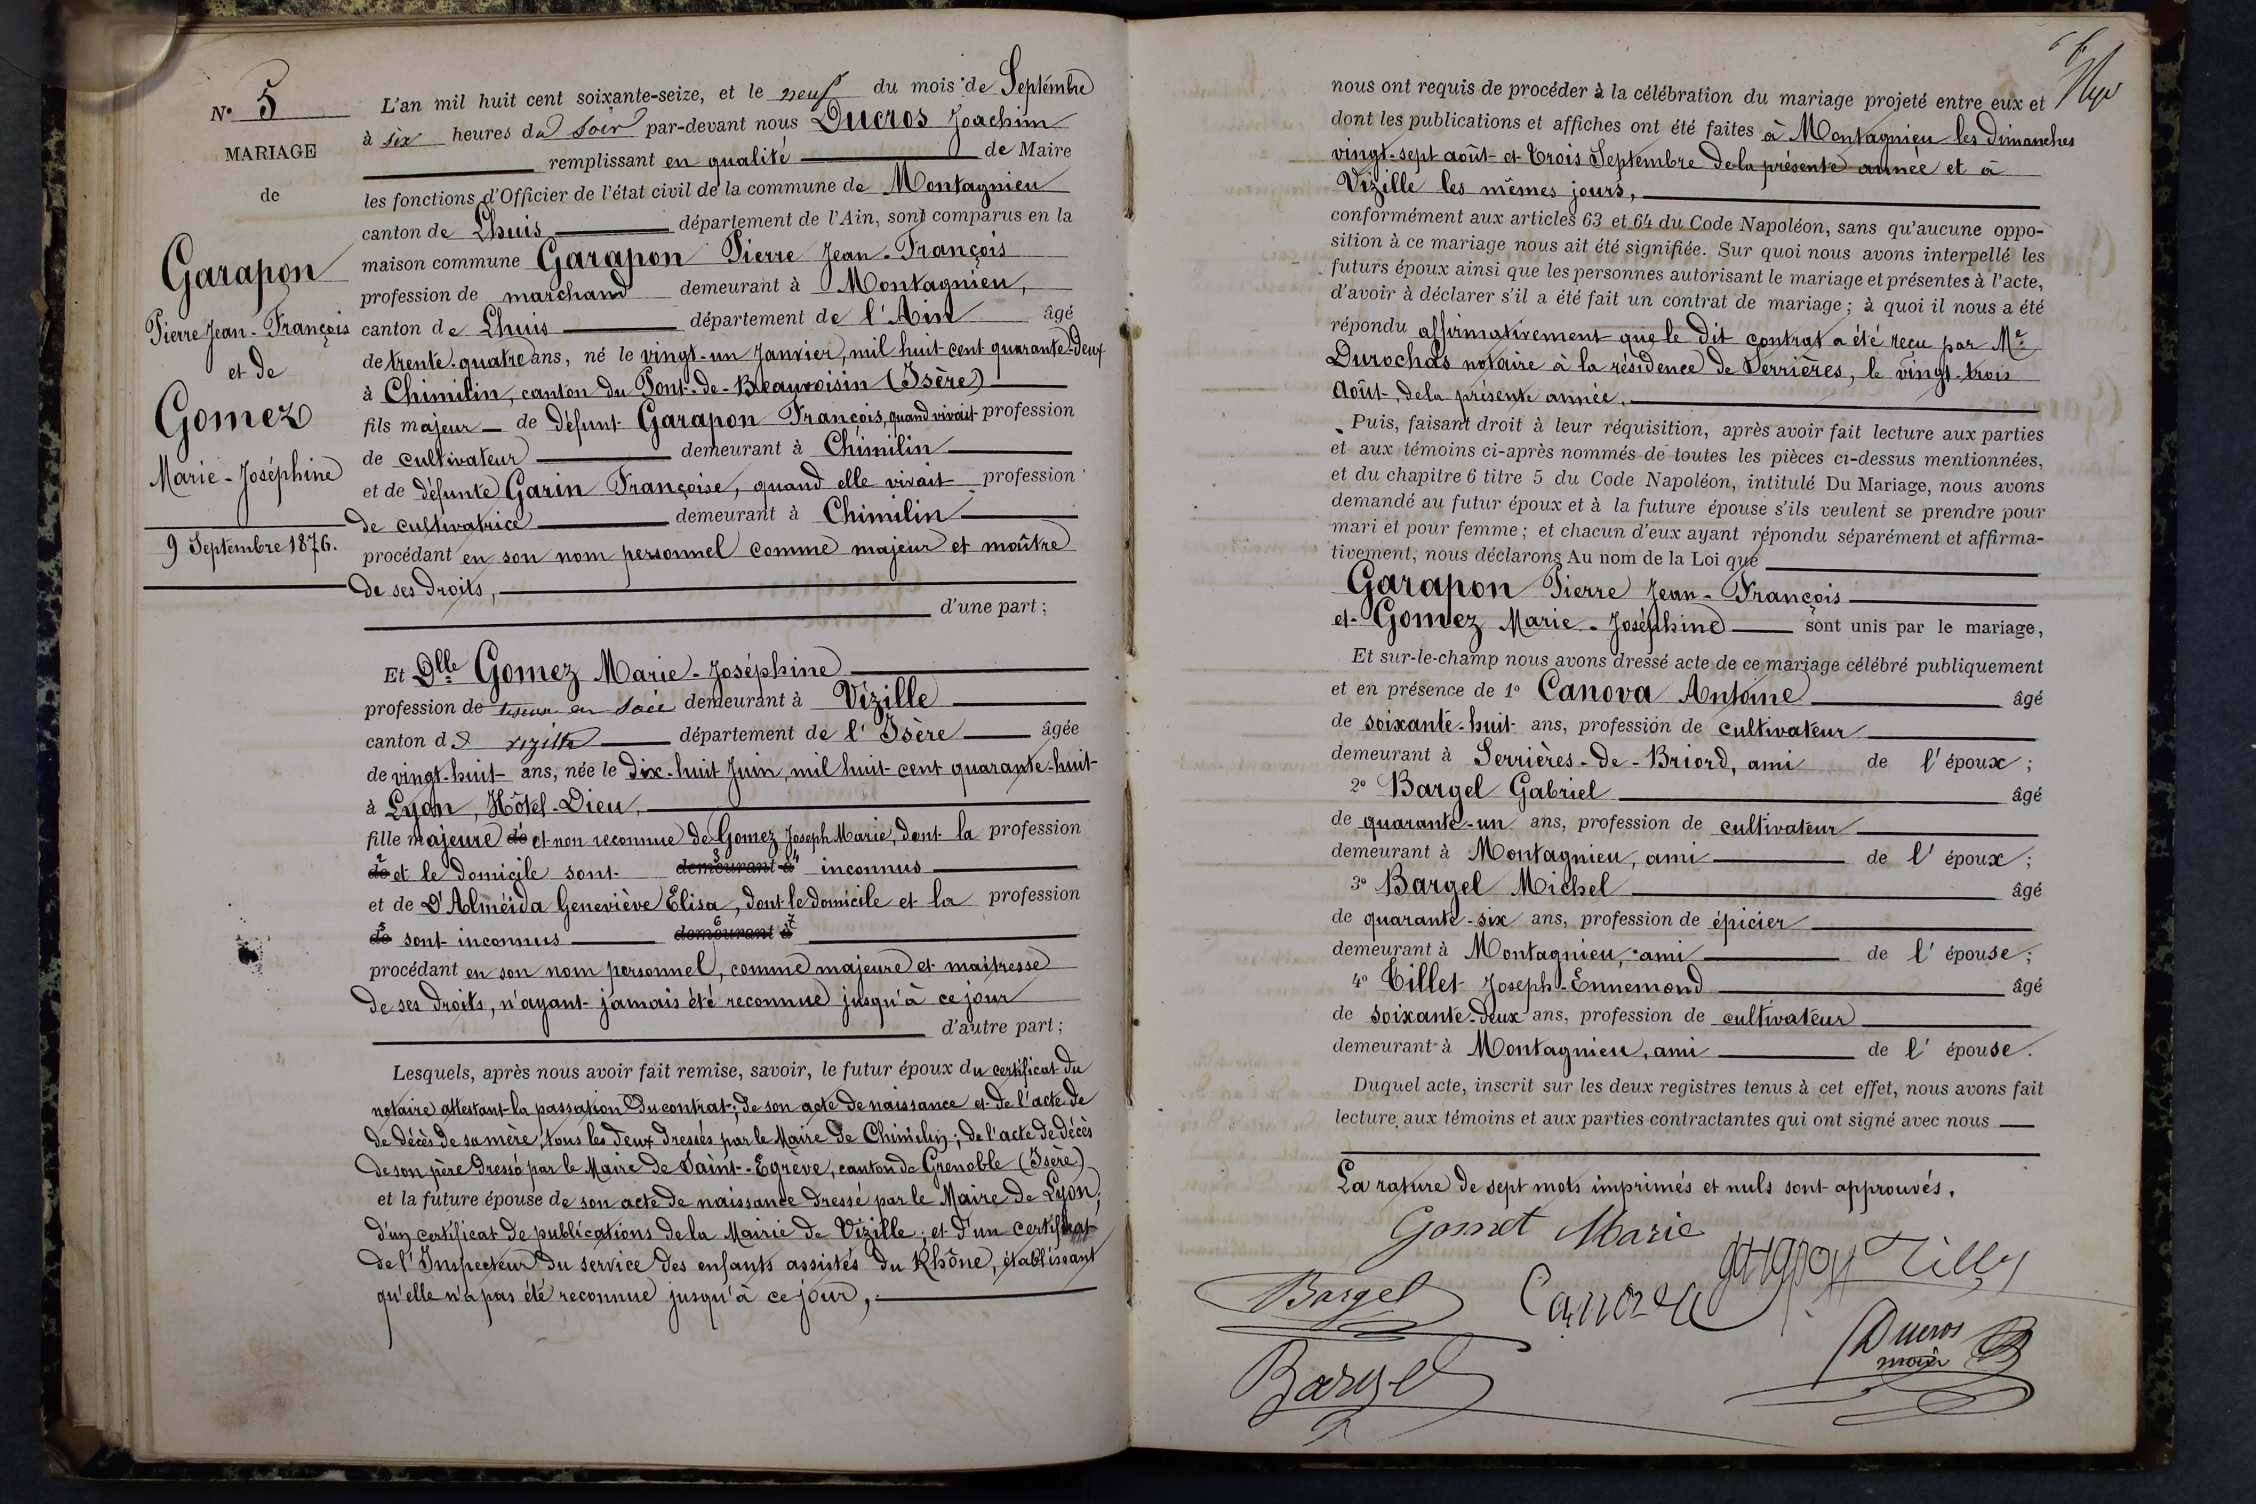 N° 5
MARIAGE
de
Garapon
Pierre Jean-François
et de
Gomez
Marie-Joséphine
9 Septembre 1876.
L'an mil huit cent soixante-seize, et le neuf du mois de Septembre
à six heures du soir par-devant nous Ducros Joachim
remplissant en qualité de Maire
les fonctions d'Officier de l'état civil de la commune de Montagnieu
canton de Lhuis département de l'Ain, sont comparus en la
maison commune Garapon Pierre Jean-François
profession de marchand demeurant à Montagnieu,
canton de Lhuis département de l'Ain âgé
de trente-quatre ans, né le vingt-un Janvier, mil huit-cent quarante-deux
à Chimilin, canton du Pont-de-Beauvoisin (Isère)
fils majeur de défunt Garapon François, quand vivait profession
de cultivateur demeurant à Chimilin
et de défunte Garin Françoise, quand elle vivait profession
de cultivatrice demeurant à Chimilin
procédant en son nom personnel comme majeur et maître
de ses droits,
d'une part;
Et Dlle Gomez Marie-Joséphine
profession de en soie demeurant à Vizille
canton de vizille département de l'Isère âgée
de vingt-huit ans, née le dix-huit Juin, mil huit-cent quarante-huit
à Lyon, Hôtel-Dieu,
fille majeure de et non reconnue de Gomez Joseph Marie, dont la profession
de et le domicile sont demeurant à inconnus
et de D'Alméida Geneviève Elisa, dont le domicile et la profession
de sont inconnus demeurant à
procédant en son nom personnel, comme majeure et maitresse
de ses droits, n'ayant jamais été reconnue jusqu'à ce jour
d'autre part;
Lesquels, après nous avoir fait remise, savoir, le futur époux du certificat du
notaire attestant la passation du contrat; de son acte de naissance et de l'acte de
de décès de sa mère, tous les deux dressés par le Maire de Chimilin; de l'acte de décès
de son père dressé par le Maire de Saint-Egrève, canton de Grenoble (Isère)
et la future épouse de son acte de naissance dressé par le Maire de Lyon;
d'un certificat de publications de la Mairie de Vizille; et d'un certificat
de l'Inspecteur du service des enfants assistés du Rhône, établissant
qu'elle n'a pas été reconnue jusqu'à ce jour,
nous ont requis de procéder à la célébration du mariage projeté entre eux et
dont les publications et affiches ont été faites à Montagnieu les dimanches
vingt-sept août et trois Septembre de la présente année et à
Vizille les mêmes jours,
conformément aux articles 63 et 64 du Code Napoléon, sans qu'aucune oppo-
sition à ce mariage nous ait été signifiée. Sur quoi nous avons interpellé les
futurs époux ainsi que les personnes autorisant le mariage et présentes à l'acte,
d'avoir à déclarer s'il a été fait un contrat de mariage; à quoi il nous a été
répondu affirmativement que le dit contrat a été reçu par Me
Durochas notaire à la résidence de Serrières, le vingt-trois
Août, de la présente année.
Puis, faisant droit à leur réquisition, après avoir fait lecture aux parties
et aux témoins ci-après nommés de toutes les pièces ci-dessus mentionnées,
et du chapitre 6 titre 5 du Code Napoléon, intitulé Du Mariage, nous avons
demandé au futur époux et à la future épouse s'ils veulent se prendre pour
mari et pour femme; et chacun d'eux ayant répondu séparément et affirma-
tivement, nous déclarons Au nom de la Loi que
Garapon Pierre Jean-François
et Gomez Marie-Joséphine sont unis par le mariage,
Et sur-le-champ nous avons dressé acte de ce mariage célébré publiquement
et en présence de 1° Canova Antoine âgé
de soixante-huit ans, profession de cultivateur
demeurant à Serrières-de-Briord, ami de l'époux;
2° Bargel Gabriel âgé
de quarante-un ans, profession de cultivateur
demeurant à Montagnieu, ami de l'époux;
3° Bargel Michel âgé
de quarante-six ans, profession de épicier
demeurant à Montagnieu, ami de l'épouse;
4° Tillet Joseph-Ennemond âgé
de soixante-deux ans, profession de cultivateur
demeurant à Montagnieu, ami de l'épouse.
Duquel acte, inscrit sur les deux registres tenus à cet effet, nous avons fait
lecture aux témoins et aux parties contractantes qui ont signé avec nous
La rature de sept mots imprimés et nuls sont approuvés.
Gomet Marie
garapon Tillet
Bargel Canova
Ducros
maire
Bargel